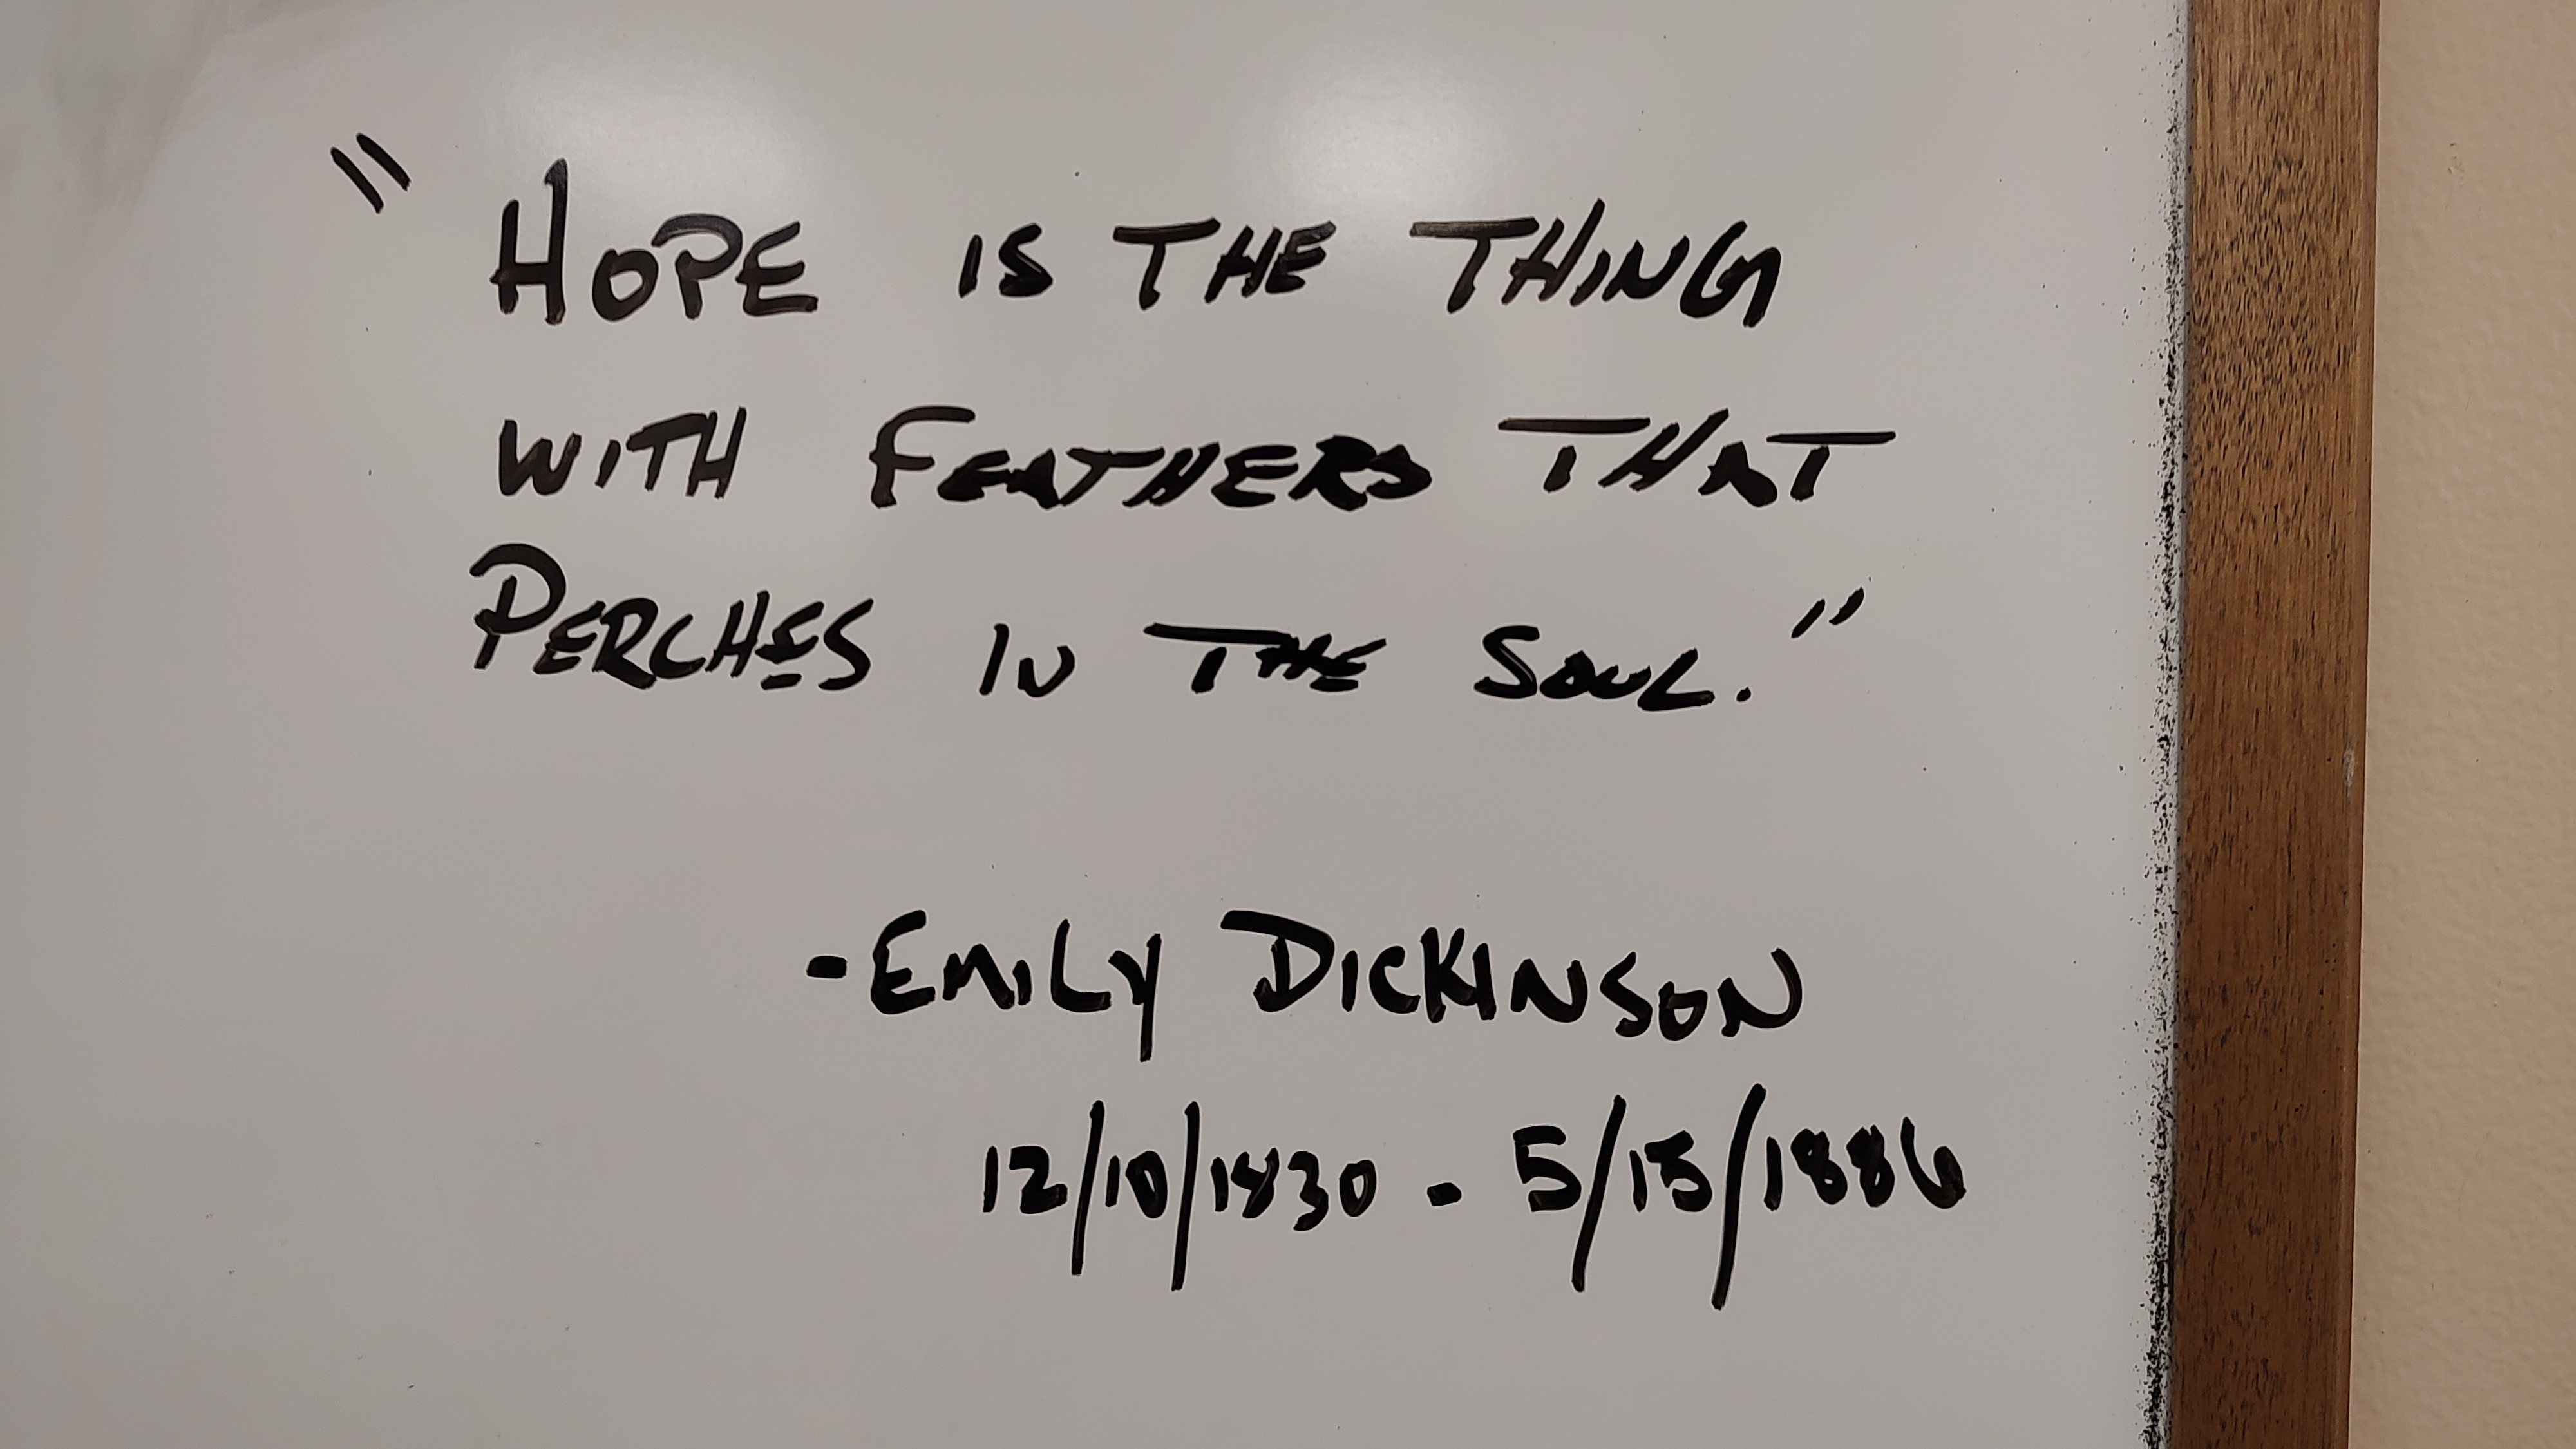 "HOPE IS THE THING
WITH FEATHERS THAT
PERCHES IN THE SOUL."
-EMILY DICKINSON
12/10/1830 - 5/15/1886